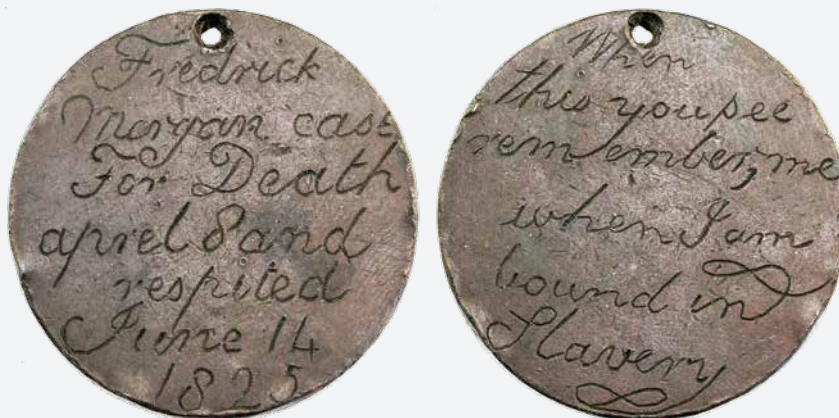 Fredrick
Morgan cast
For Death
apriel 8 and
respited
June 14
1825
When
this you see
rem ember, me
when I am
bound in
Slavery